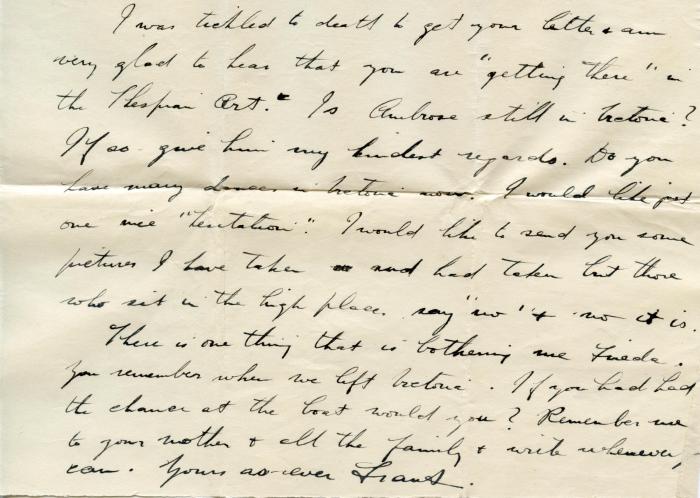 I was tickled to death to get your letter & am
very glad to hear that you are "getting there" in
the Thespian Art. Is Ambrose still in Victoria?
If so give him my kindest regards. Do you
have many dances in Victoria now. I would like just
one nice "hesitation". I would like to send you some
pictures I have taken and had taken but those
who sit in the high place. say "no" & no it is.
There is one thing that is bothering me Frieda.
You remember when we left Victoria. If you had had
the chance at the boat would you? Remember me
to your mother & all the family & write whenever
can. Yours as ever Frank.